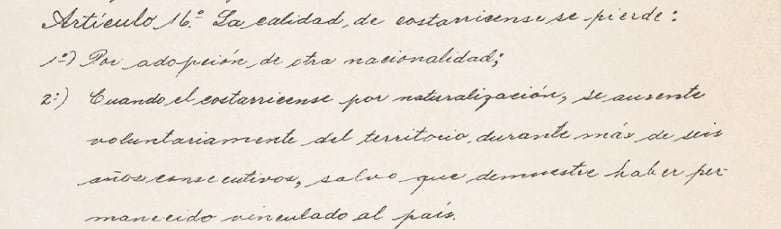 Artículo 16.º La calidad de costarricense se pierde:
1º) Por adopción de otra nacionalidad;
2º) Cuando el costarricense por naturalización, se ausente
voluntariamente del territorio durante más de seis
años consecutivos, salvo que demuestre haber per-
manecido vinculado al país.